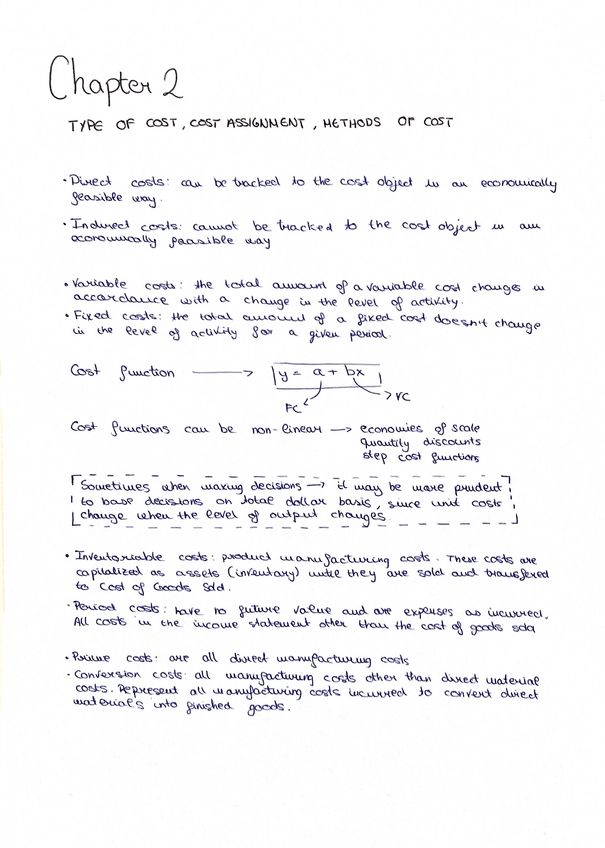 Chapter 2
TYPE OF COST, COST ASSIGNMENT, METHODS OF COST
• Direct costs: can be tracked to the cost object in an economically
feasible way.
• Indirect costs: cannot be tracked to the cost object in an
economically feasible way
• Variable costs: the total amount of a variable cost changes in
accordance with a change in the level of activity.
• Fixed costs: the total amount of a fixed cost doesn't change
in the level of activity for a given period.
Cost function → y = a + bx
FC VC
Cost functions can be non-linear → economies of scale
quantity discounts
step cost functions
Sometimes when making decisions → it may be more prudent
to base decisions on total dollar basis, since unit costs
change when the level of output changes.
• Inventoriable costs: product manufacturing costs. These costs are
capitalized as assets (inventory) until they are sold and transferred
to Cost of Goods Sold.
• Period costs: have no future value and are expenses as incurred.
All costs in the income statement other than the cost of goods sold
• Prime costs: are all direct manufacturing costs
• Conversion costs: all manufacturing costs other than direct material
costs. Represent all manufacturing costs incurred to convert direct
materials into finished goods.